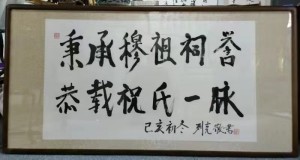 秉承穆祖祠誉
恭载祝氏一脉
己亥初冬